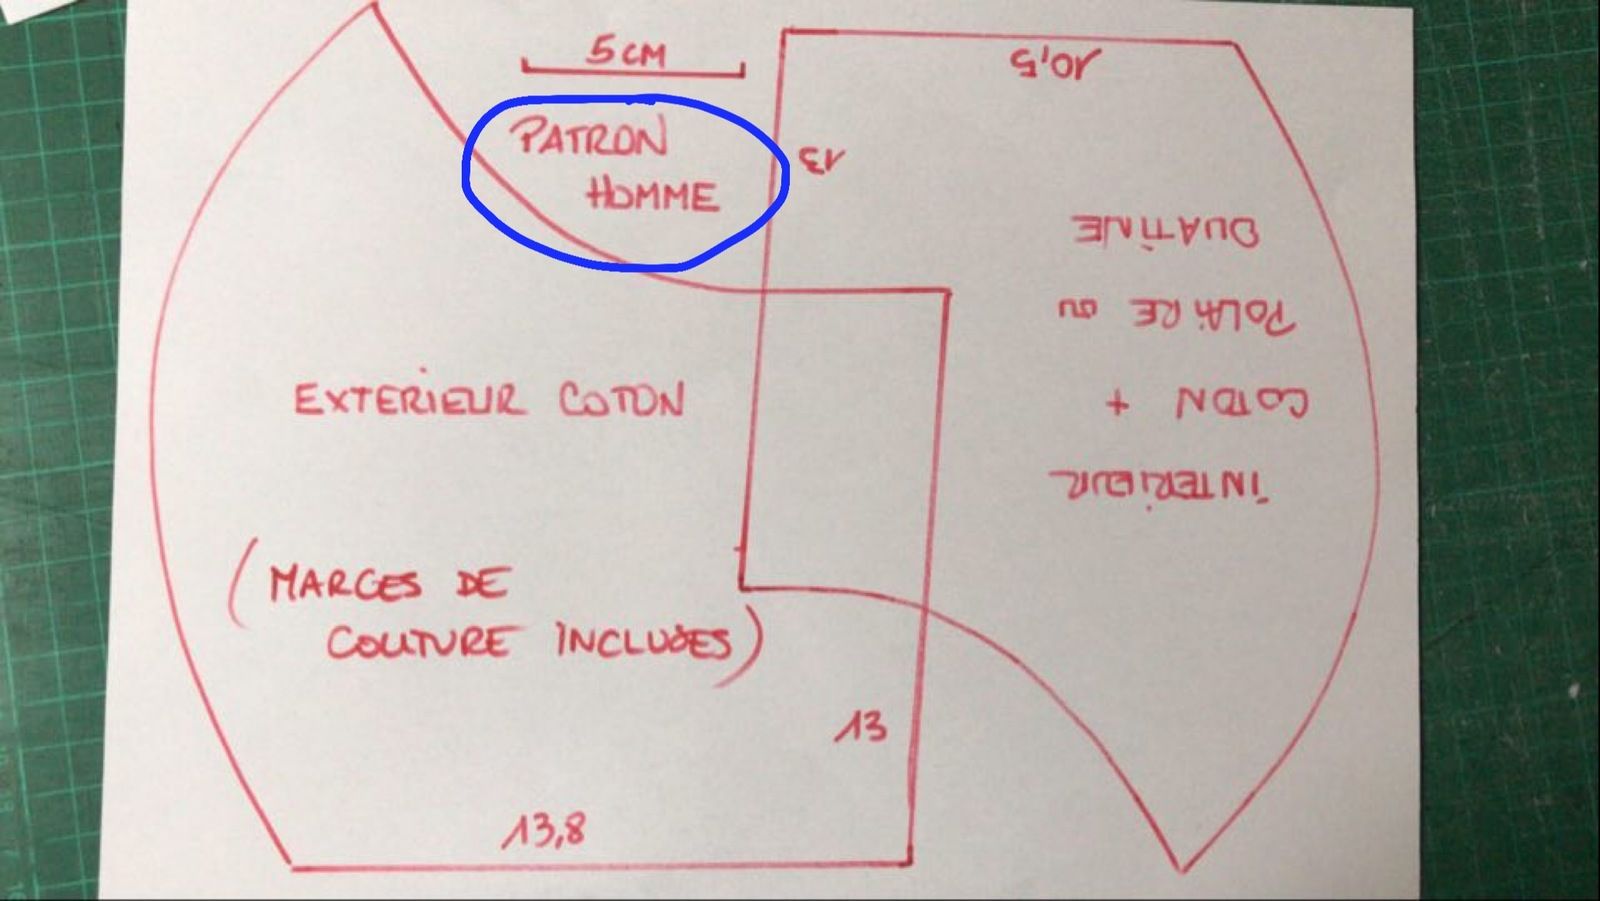 5 CM
PATRON
HOMME
EXTERIEUR COTON
(MARGES DE
COUTURE INCLUSES)
13,8
13
INTERIEUR
COTON +
POLAIRE OU
OUATINE
13
10,5